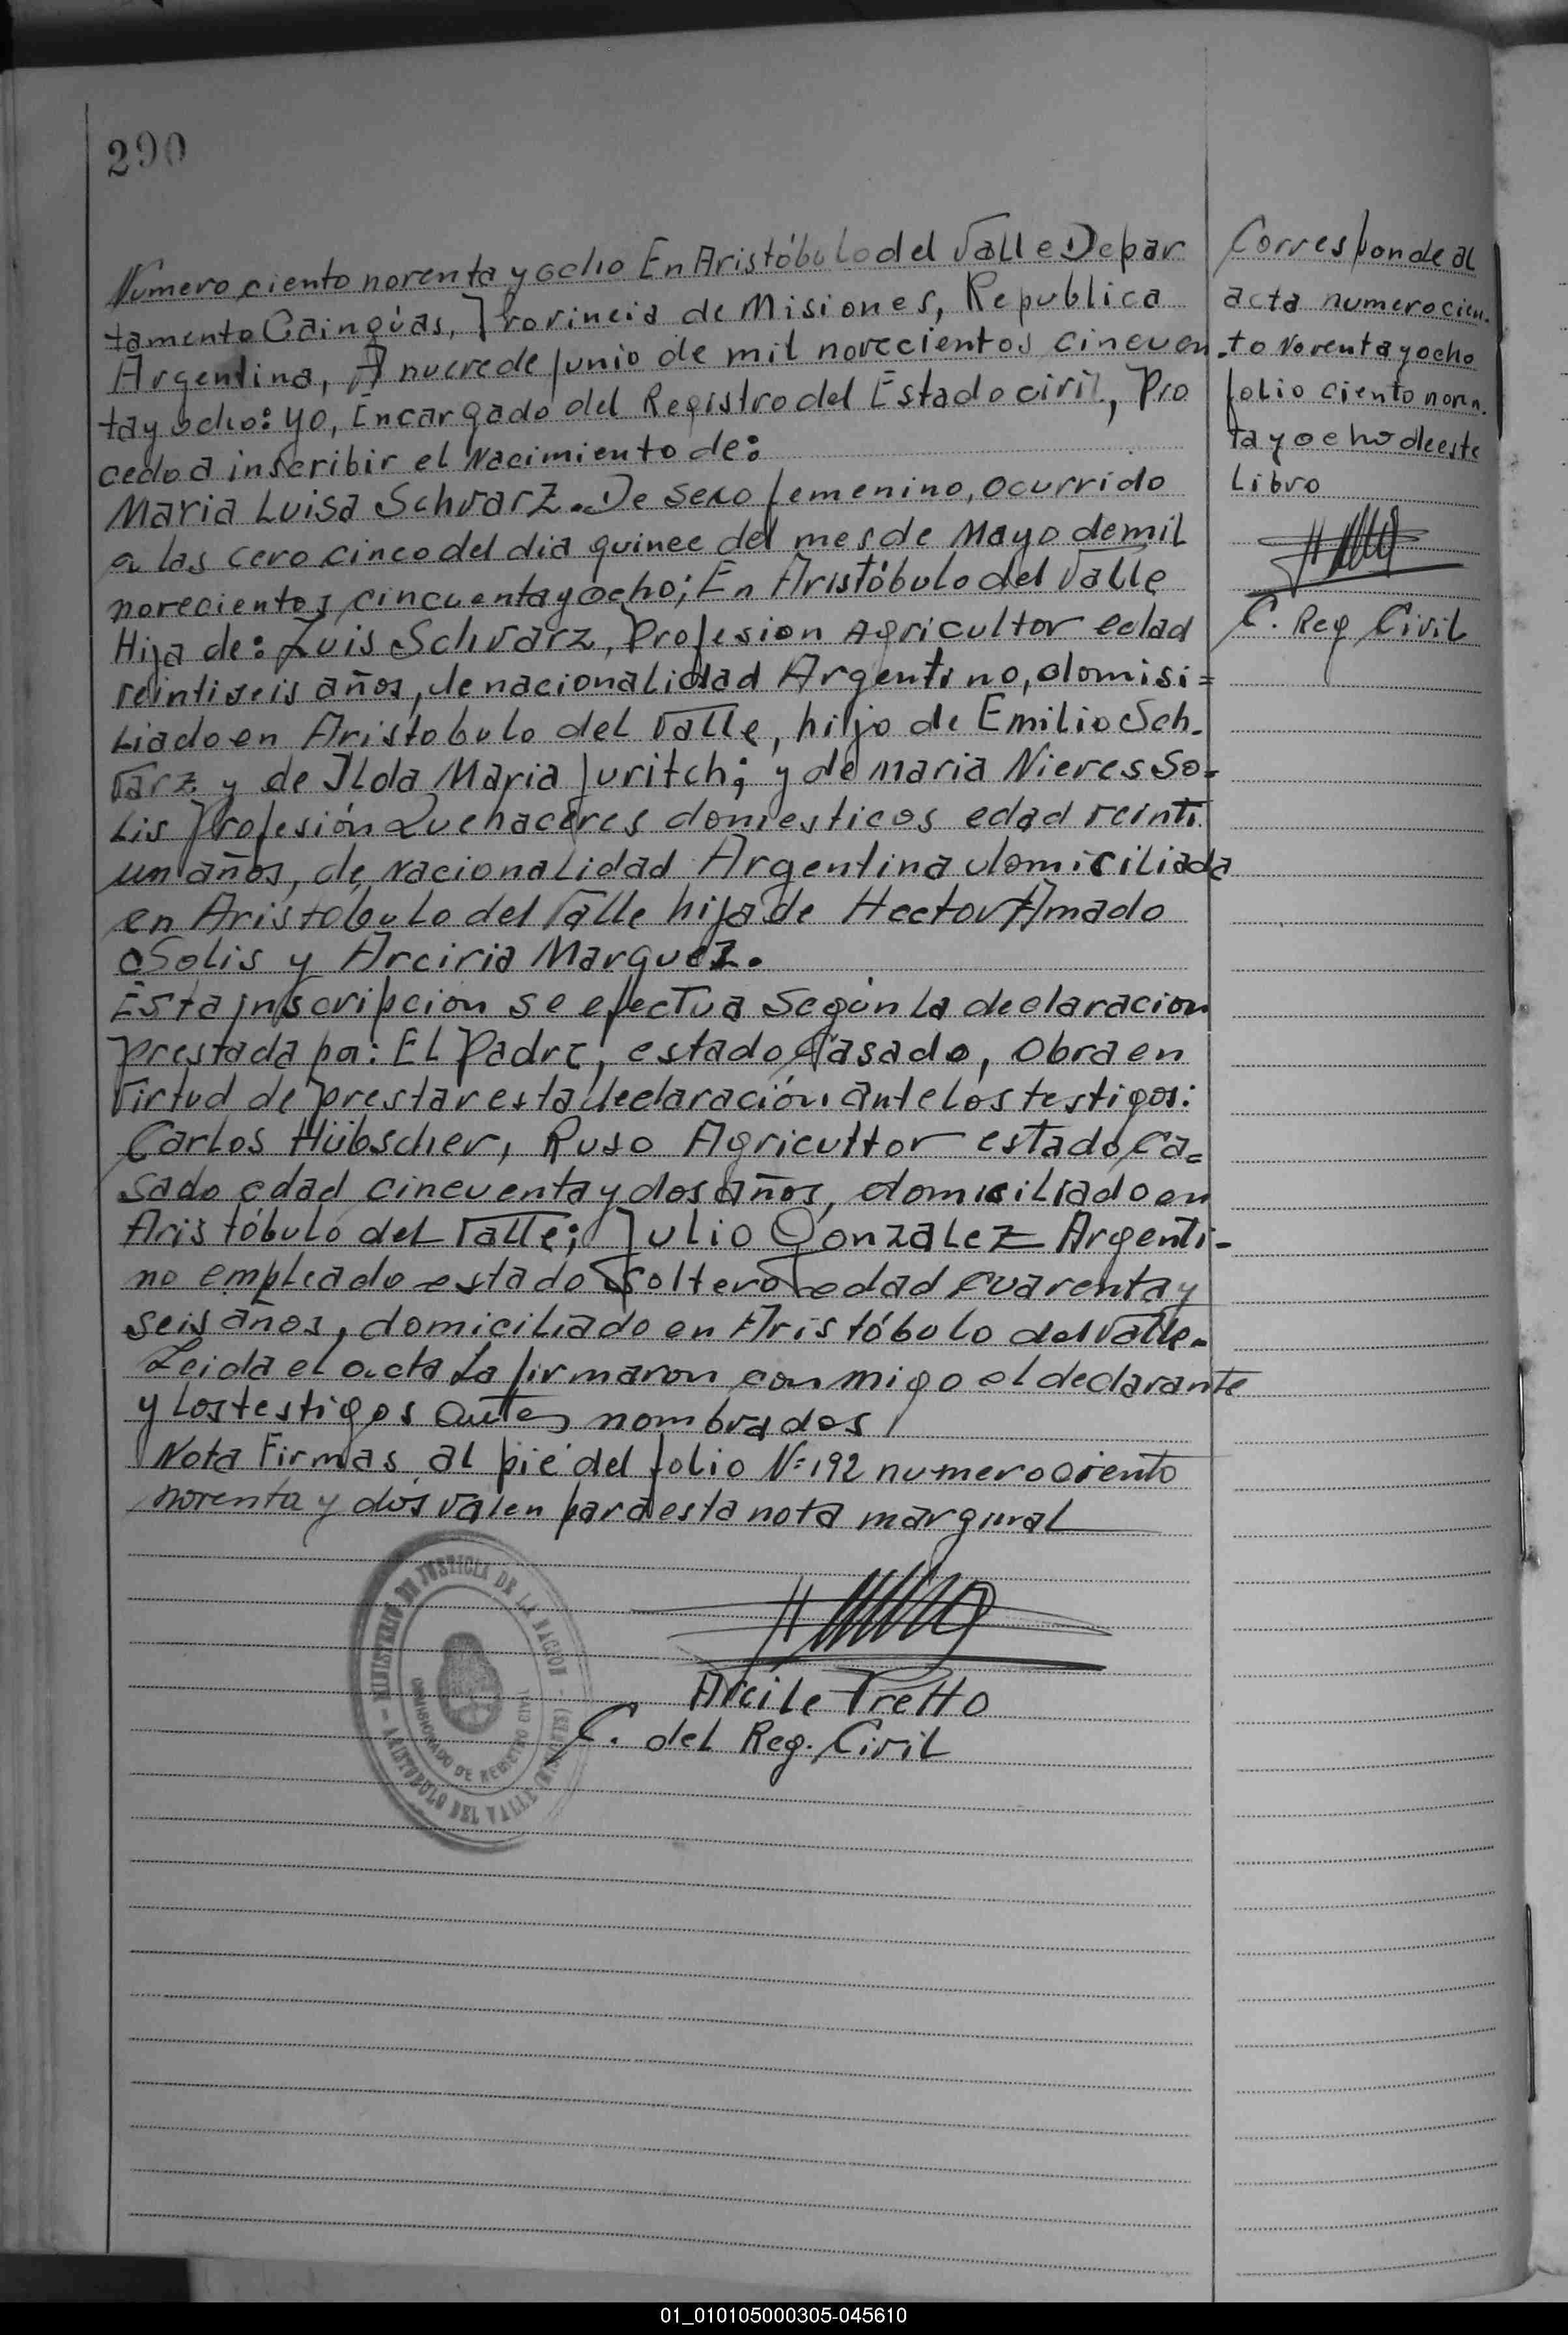 290
Numero ciento noventa y ocho En Aristóbulo del Valle Depar
tamento Cainguás, Provincia de Misiones, Republica
Argentina, A nueve de Junio de mil novecientos cincuen-
ta y ocho: yo, Encargado del Registro del Estado civil, Pro
cedo a inscribir el Nacimiento de:
Maria Luisa Schvarz. De sexo femenino, ocurrido
a las cero cinco del dia quince del mes de Mayo de mil
novecientos cincuenta y ocho; En Aristóbulo del Valle
Hija de: Luis Schvarz, Profesion Agricultor edad
veintiseis años, de nacionalidad Argentino, domisi=
liado en Aristobulo del Valle, hijo de Emilio Sch-
varz y de Ilda Maria Juritch; y de maria Nieves So-
lis Profesión Quehaceres domesticos edad veinti
un años, de nacionalidad Argentina domiciliada
en Aristobulo del Valle hija de Hector Amado
Solis y Arciria Marquez.
Esta Inscripcion se efectua Según la declaracion
prestada por: El Padre, estado Casado, Obra en
virtud de prestar esta declaración ante los testigos:
Carlos Hübscher, Ruso Agricultor estado Ca=
sado edad cincuenta y dos años, domiciliado en
Aristóbulo del Valle; Julio Gonzalez Argenti-
no empleado estado Soltero edad cuarenta y
seis años, domiciliado en Aristóbulo del Valle-
Leida el acta La firmaron conmigo el declarante
y Los testigos antes nombrados
Nota Firmas al pié del folio Nº 192 numero ciento
noventa y dos valen para esta nota marginal
Arcile Tretto
C. del Reg. Civil
MINISTERIO DE JUSTICIA DE LA NACION
COMISIONADO DE REGISTRO CIVIL
ARISTOBULO DEL VALLE (MISIONES)
Corresponde al
acta numero cien-
to Noventa y ocho
folio ciento noven-
ta y ocho de este
Libro
C. Reg Civil
01_010105000305-045610